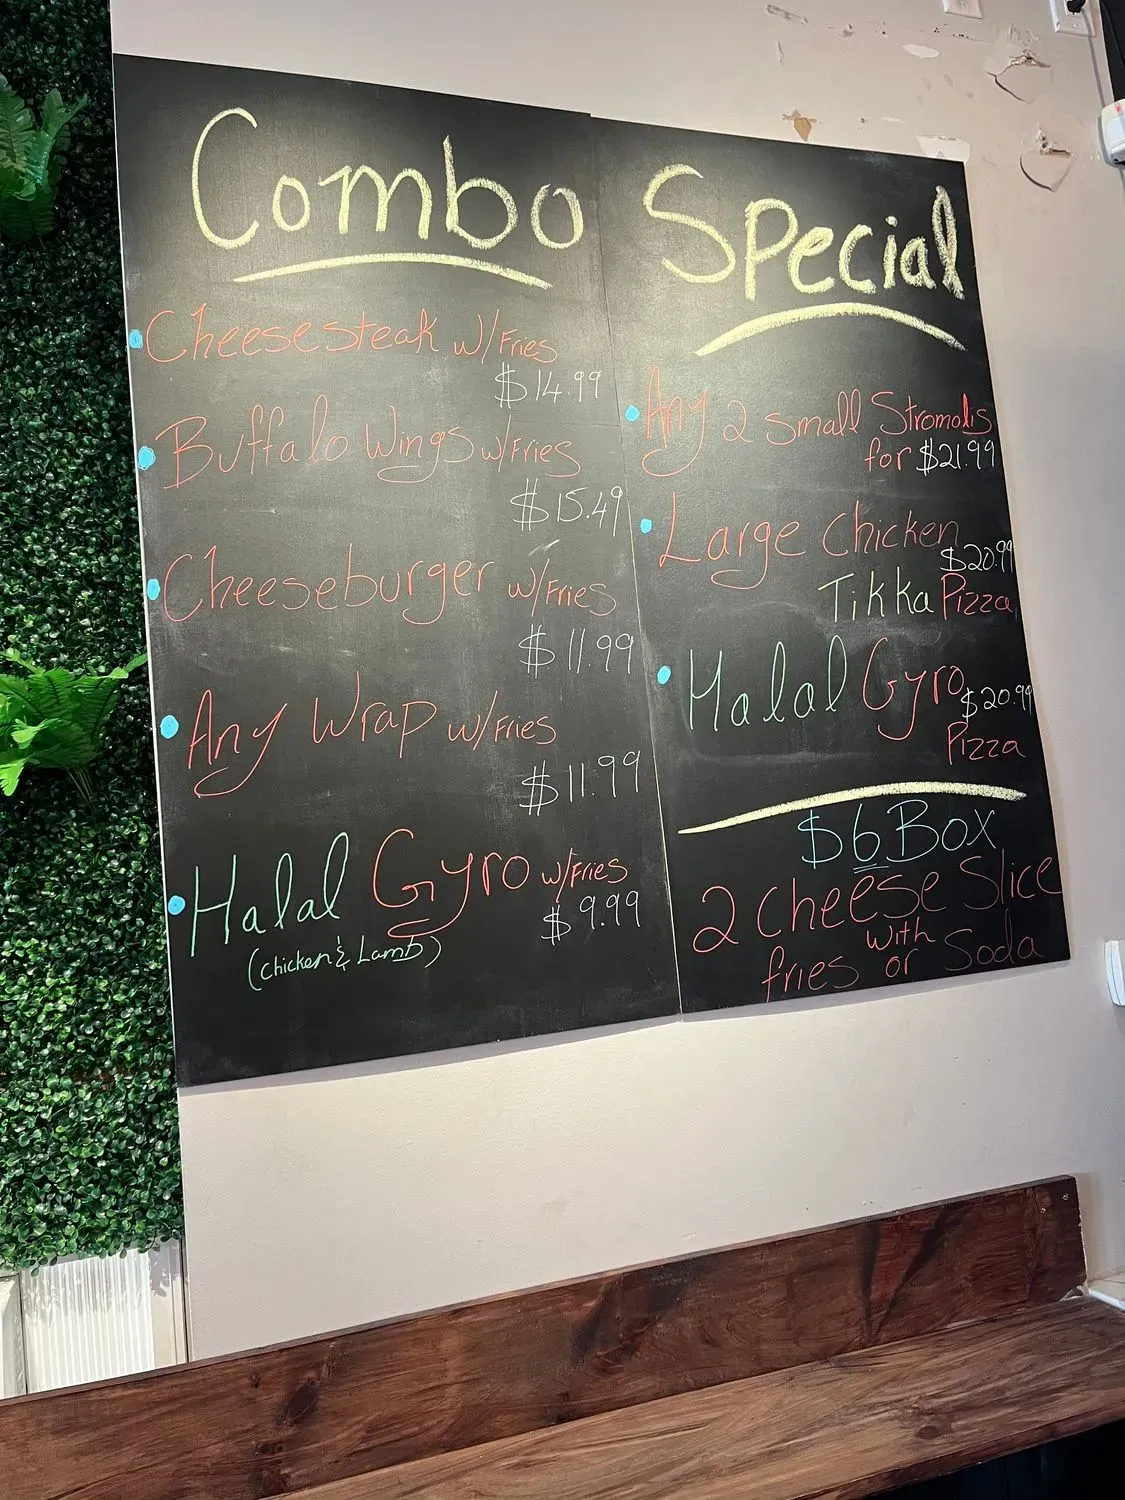 Combo
Cheesesteak w/Fries
$14.99
Buffalo Wings w/Fries
$15.49
Cheeseburger w/Fries
$11.99
Any Wrap w/Fries
$11.99
Halal Gyro w/Fries
$9.99
(Chicken & Lamb)
Special
Any 2 small Stromolis
for $21.99
Large Chicken
$20.99
Tikka Pizza
Halal Gyro
$20.99
Pizza
$6 Box
2 Cheese Slice
with
fries or Soda